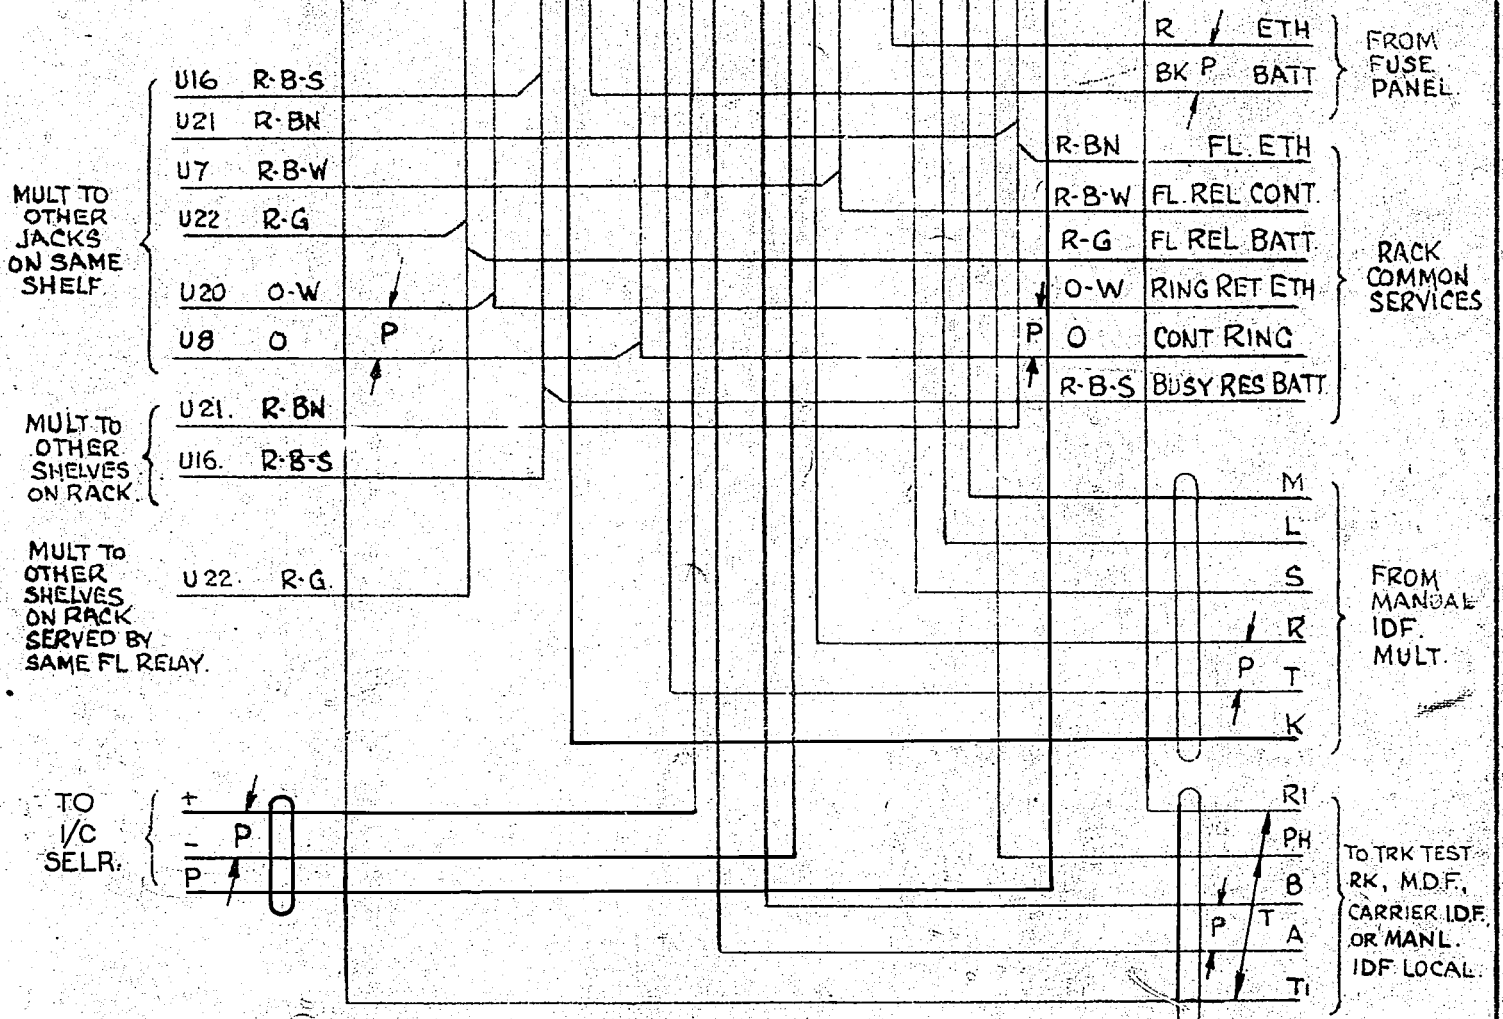 R ETH
BK P BATT
FROM
FUSE
PANEL.
U16 R-B-S
U21 R-BN
U7 R-B-W
U22 R-G
U20 O-W
U8 O P
MULT TO
OTHER
JACKS
ON SAME
SHELF
R-BN FL. ETH
R-B-W FL. REL CONT.
R-G FL REL BATT.
O-W RING RET ETH
P O CONT RING
R-B-S BUSY RES BATT
RACK
COMMON
SERVICES
MULT TO
OTHER
SHELVES
ON RACK.
U21. R-BN
U16. R-B-S
MULT TO
OTHER
SHELVES
ON RACK
SERVED BY
SAME FL RELAY.
U22. R-G.
M
L
S
R
P T
K
FROM
MANUAL
IDF.
MULT.
TO
I/C
SELR.
+
- P
P
R1
PH
B
P T A
T1
TO TRK TEST
RK, M.D.F.,
CARRIER I.D.F.
OR MANL.
IDF LOCAL.